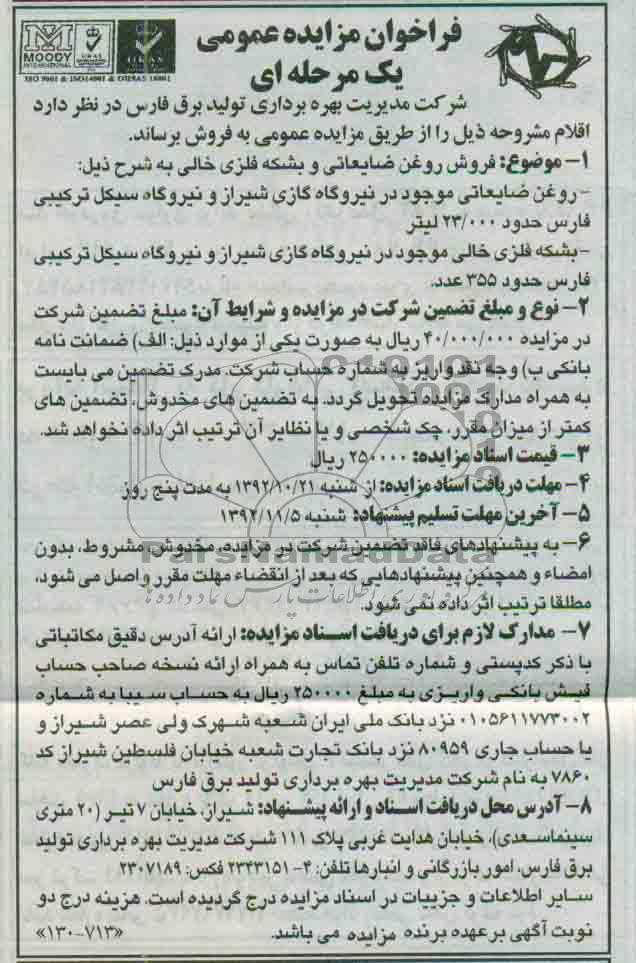 فراخوان مزایده عمومی
یک مرحله ای
MOODY
INTERNATIONAL
UKAS
UKAS
ISO 9001 & ISO14001 & OHSAS 18001
شرکت مدیریت بهره برداری تولید برق فارس در نظر دارد
اقلام مشروحه ذیل را از طریق مزایده عمومی به فروش برساند.
۱- موضوع: فروش روغن ضایعاتی و بشکه فلزی خالی به شرح ذیل:
- روغن ضایعاتی موجود در نیروگاه گازی شیراز و نیروگاه سیکل ترکیبی
فارس حدود ۲۳/۰۰۰ لیتر
- بشکه فلزی خالی موجود در نیروگاه گازی شیراز و نیروگاه سیکل ترکیبی
فارس حدود ۳۵۵ عدد.
۲- نوع و مبلغ تضمین شرکت در مزایده و شرایط آن: مبلغ تضمین شرکت
در مزایده ۴۰/۰۰۰/۰۰۰ ریال به صورت یکی از موارد ذیل: الف) ضمانت نامه
بانکی ب) وجه نقد واریز به شماره حساب شرکت. مدرک تضمین می بایست
به همراه مدارک مزایده تحویل گردد. به تضمین های مخدوش، تضمین های
کمتر از میزان مقرر، چک شخصی و یا نظایر آن ترتیب اثر داده نخواهد شد.
۳- قیمت اسناد مزایده: ۲۵۰۰۰۰ ریال
۴- مهلت دریافت اسناد مزایده: از شنبه ۱۳۹۲/۱۰/۲۱ به مدت پنج روز
۵- آخرین مهلت تسلیم پیشنهاد: شنبه ۱۳۹۲/۱۱/۵
۶- به پیشنهادهای فاقد تضمین شرکت در مزایده، مخدوش، مشروط، بدون
امضاء و همچنین پیشنهادهایی که بعد از انقضاء مهلت مقرر واصل می شود،
مطلقا ترتیب اثر داده نمی شود.
۷- مدارک لازم برای دریافت اسناد مزایده: ارائه آدرس دقیق مکاتباتی
با ذکر کدپستی و شماره تلفن تماس به همراه ارائه نسخه صاحب حساب
فیش بانکی واریزی به مبلغ ۲۵۰۰۰۰ ریال به حساب سیبا به شماره
۰۱۰۵۶۱۱۷۷۳۰۰۲ نزد بانک ملی ایران شعبه شهرک ولی عصر شیراز و
یا حساب جاری ۸۰۹۵۹ نزد بانک تجارت شعبه خیابان فلسطین شیراز کد
۷۸۶۰ به نام شرکت مدیریت بهره برداری تولید برق فارس
۸- آدرس محل دریافت اسناد و ارائه پیشنهاد: شیراز، خیابان ۷ تیر (۲۰ متری
سینماسعدی)، خیابان هدایت غربی پلاک ۱۱۱ شرکت مدیریت بهره برداری تولید
برق فارس، امور بازرگانی و انبارها تلفن: ۴- ۲۳۴۳۱۵۱ فکس: ۲۳۰۷۱۸۹
سایر اطلاعات و جزییات در اسناد مزایده درج گردیده است. هزینه درج دو
نوبت آگهی بر عهده برنده مزایده می باشد.
«۱۳۰-۷۱۳»
ParsNamadData
گروه فن آوری اطلاعات پارس نماد داده ها